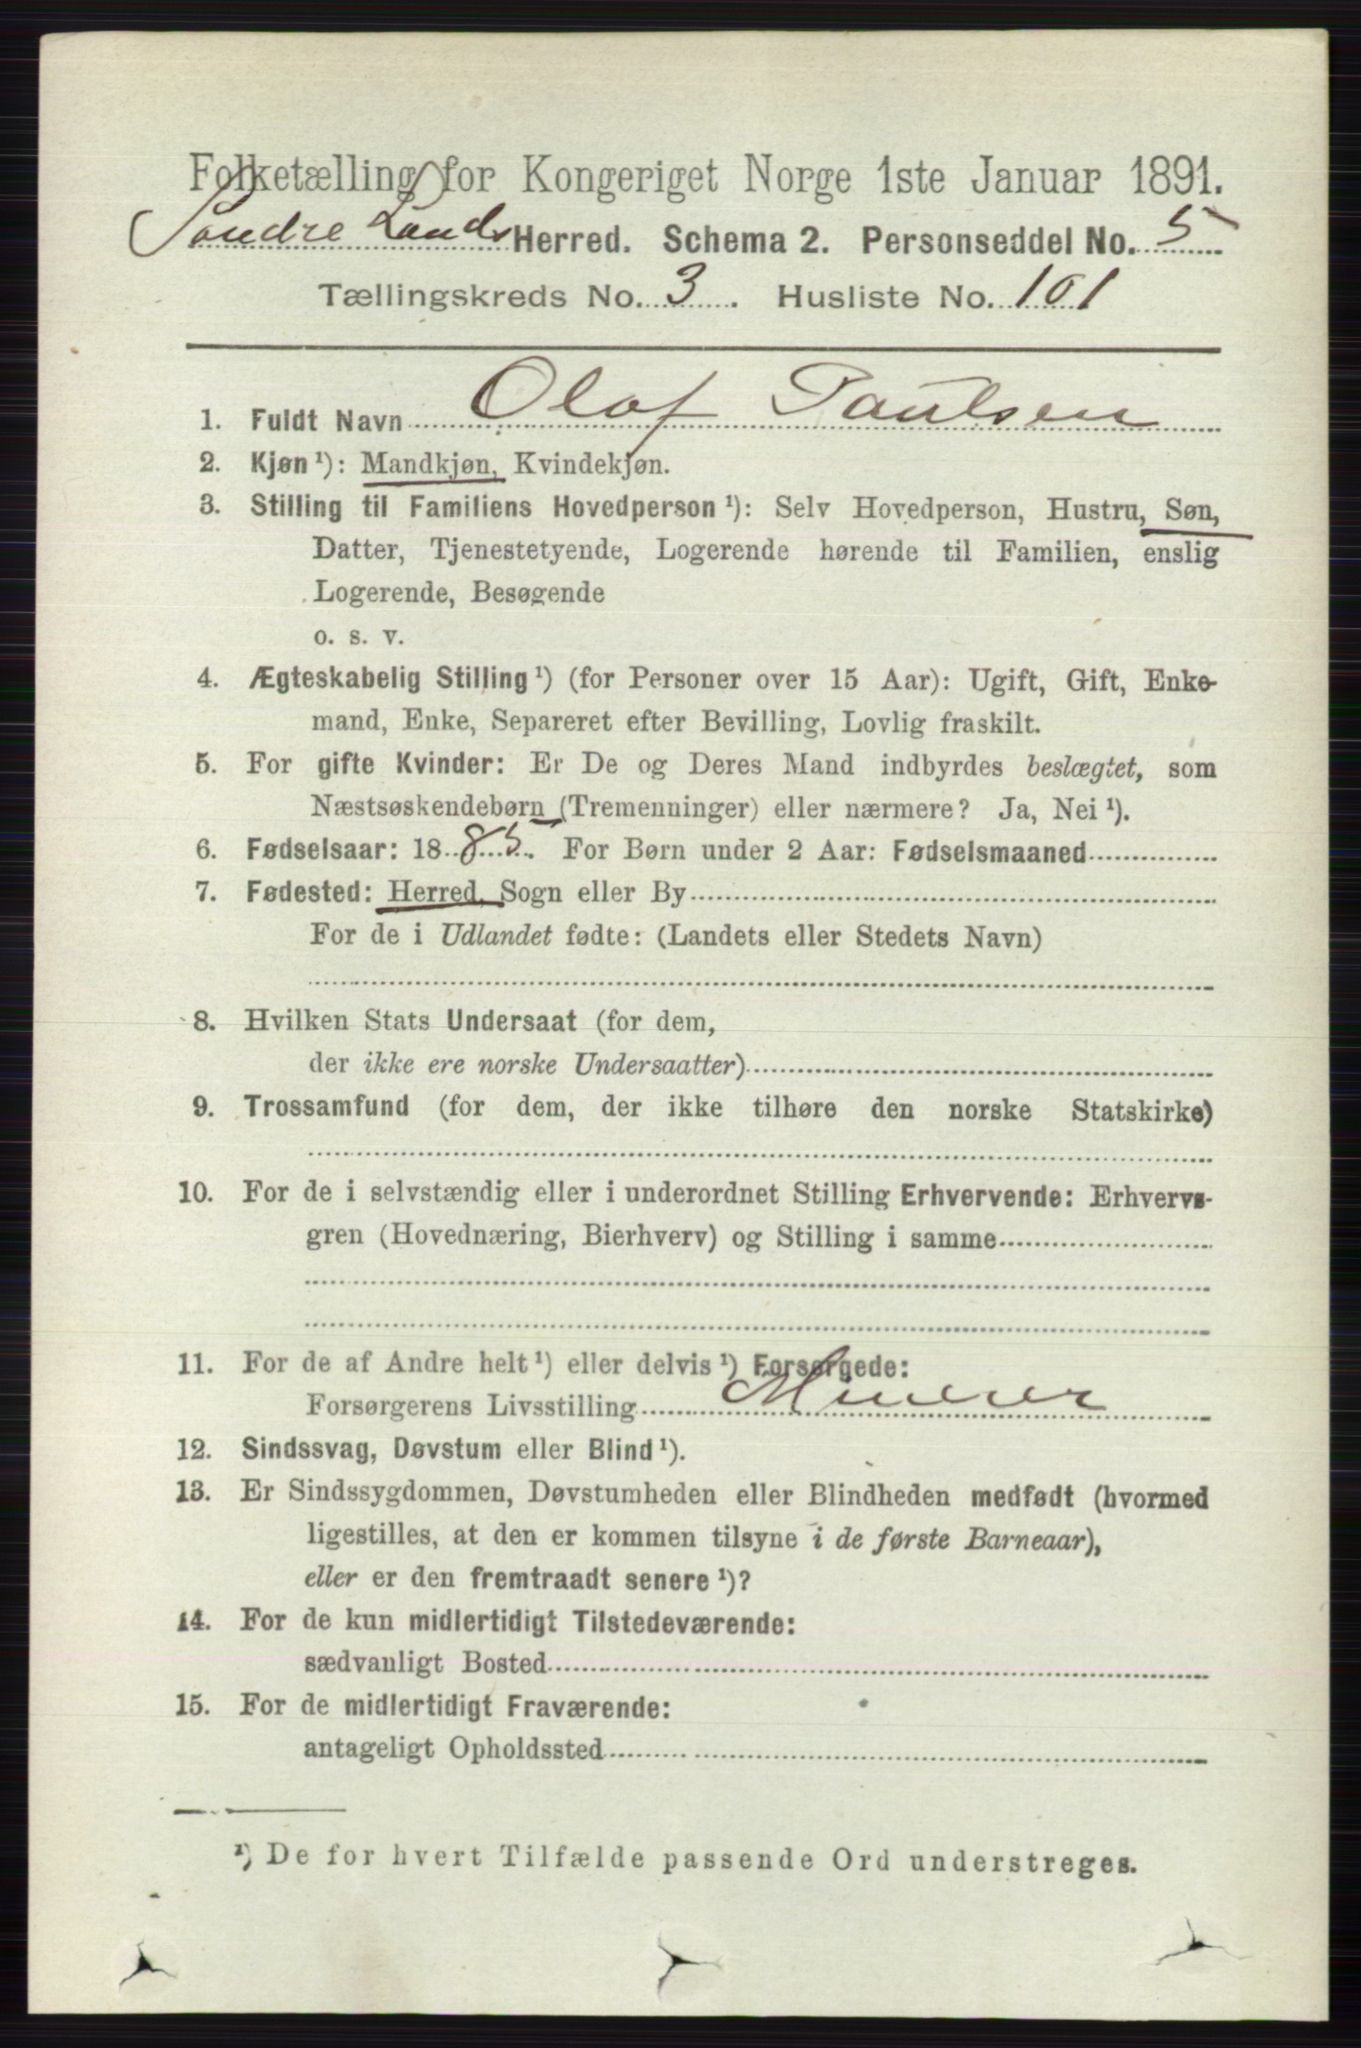 Folketælling for Kongeriget Norge 1ste Januar 1891.
Søndre Lands Herred. Schema 2. Personseddel No. 5
Tællingskreds No. 3. Husliste No. 101
1. Fuldt Navn Olaf Paulsen
2. Kjøn¹): Mandkjøn, Kvindekjøn.
3. Stilling til Familiens Hovedperson¹): Selv Hovedperson, Hustru, Søn,
Datter, Tjenestetyende, Logerende hørende til Familien, enslig
Logerende, Besøgende
o. s. v.
4. Ægteskabelig Stilling¹) (for Personer over 15 Aar): Ugift, Gift, Enke-
mand, Enke, Separeret efter Bevilling, Lovlig fraskilt.
5. For gifte Kvinder: Er De og Deres Mand indbyrdes beslægtet, som
Næstsøskendebørn (Tremenninger) eller nærmere? Ja, Nei¹).
6. Fødselsaar: 1885. For Børn under 2 Aar: Fødselsmaaned
7. Fødested: Herred, Sogn eller By
For de i Udlandet fødte: (Landets eller Stedets Navn)
8. Hvilken Stats Undersaat (for dem,
der ikke ere norske Undersaatter)
9. Trossamfund (for dem, der ikke tilhøre den norske Statskirke)
10. For de i selvstændig eller i underordnet Stilling Erhvervende: Erhvervs-
gren (Hovednæring, Bierhverv) og Stilling i samme
11. For de af Andre helt¹) eller delvis¹) Forsørgede:
Forsørgerens Livsstilling Minerer
12. Sindssvag, Døvstum eller Blind¹).
13. Er Sindssygdommen, Døvstumheden eller Blindheden medfødt (hvormed
ligestilles, at den er kommen tilsyne i de første Barneaar),
eller er den fremtraadt senere¹)?
14. For de kun midlertidigt Tilstedeværende:
sædvanligt Bosted
15. For de midlertidigt Fraværende:
antageligt Opholdssted
¹) De for hvert Tilfælde passende Ord understreges.